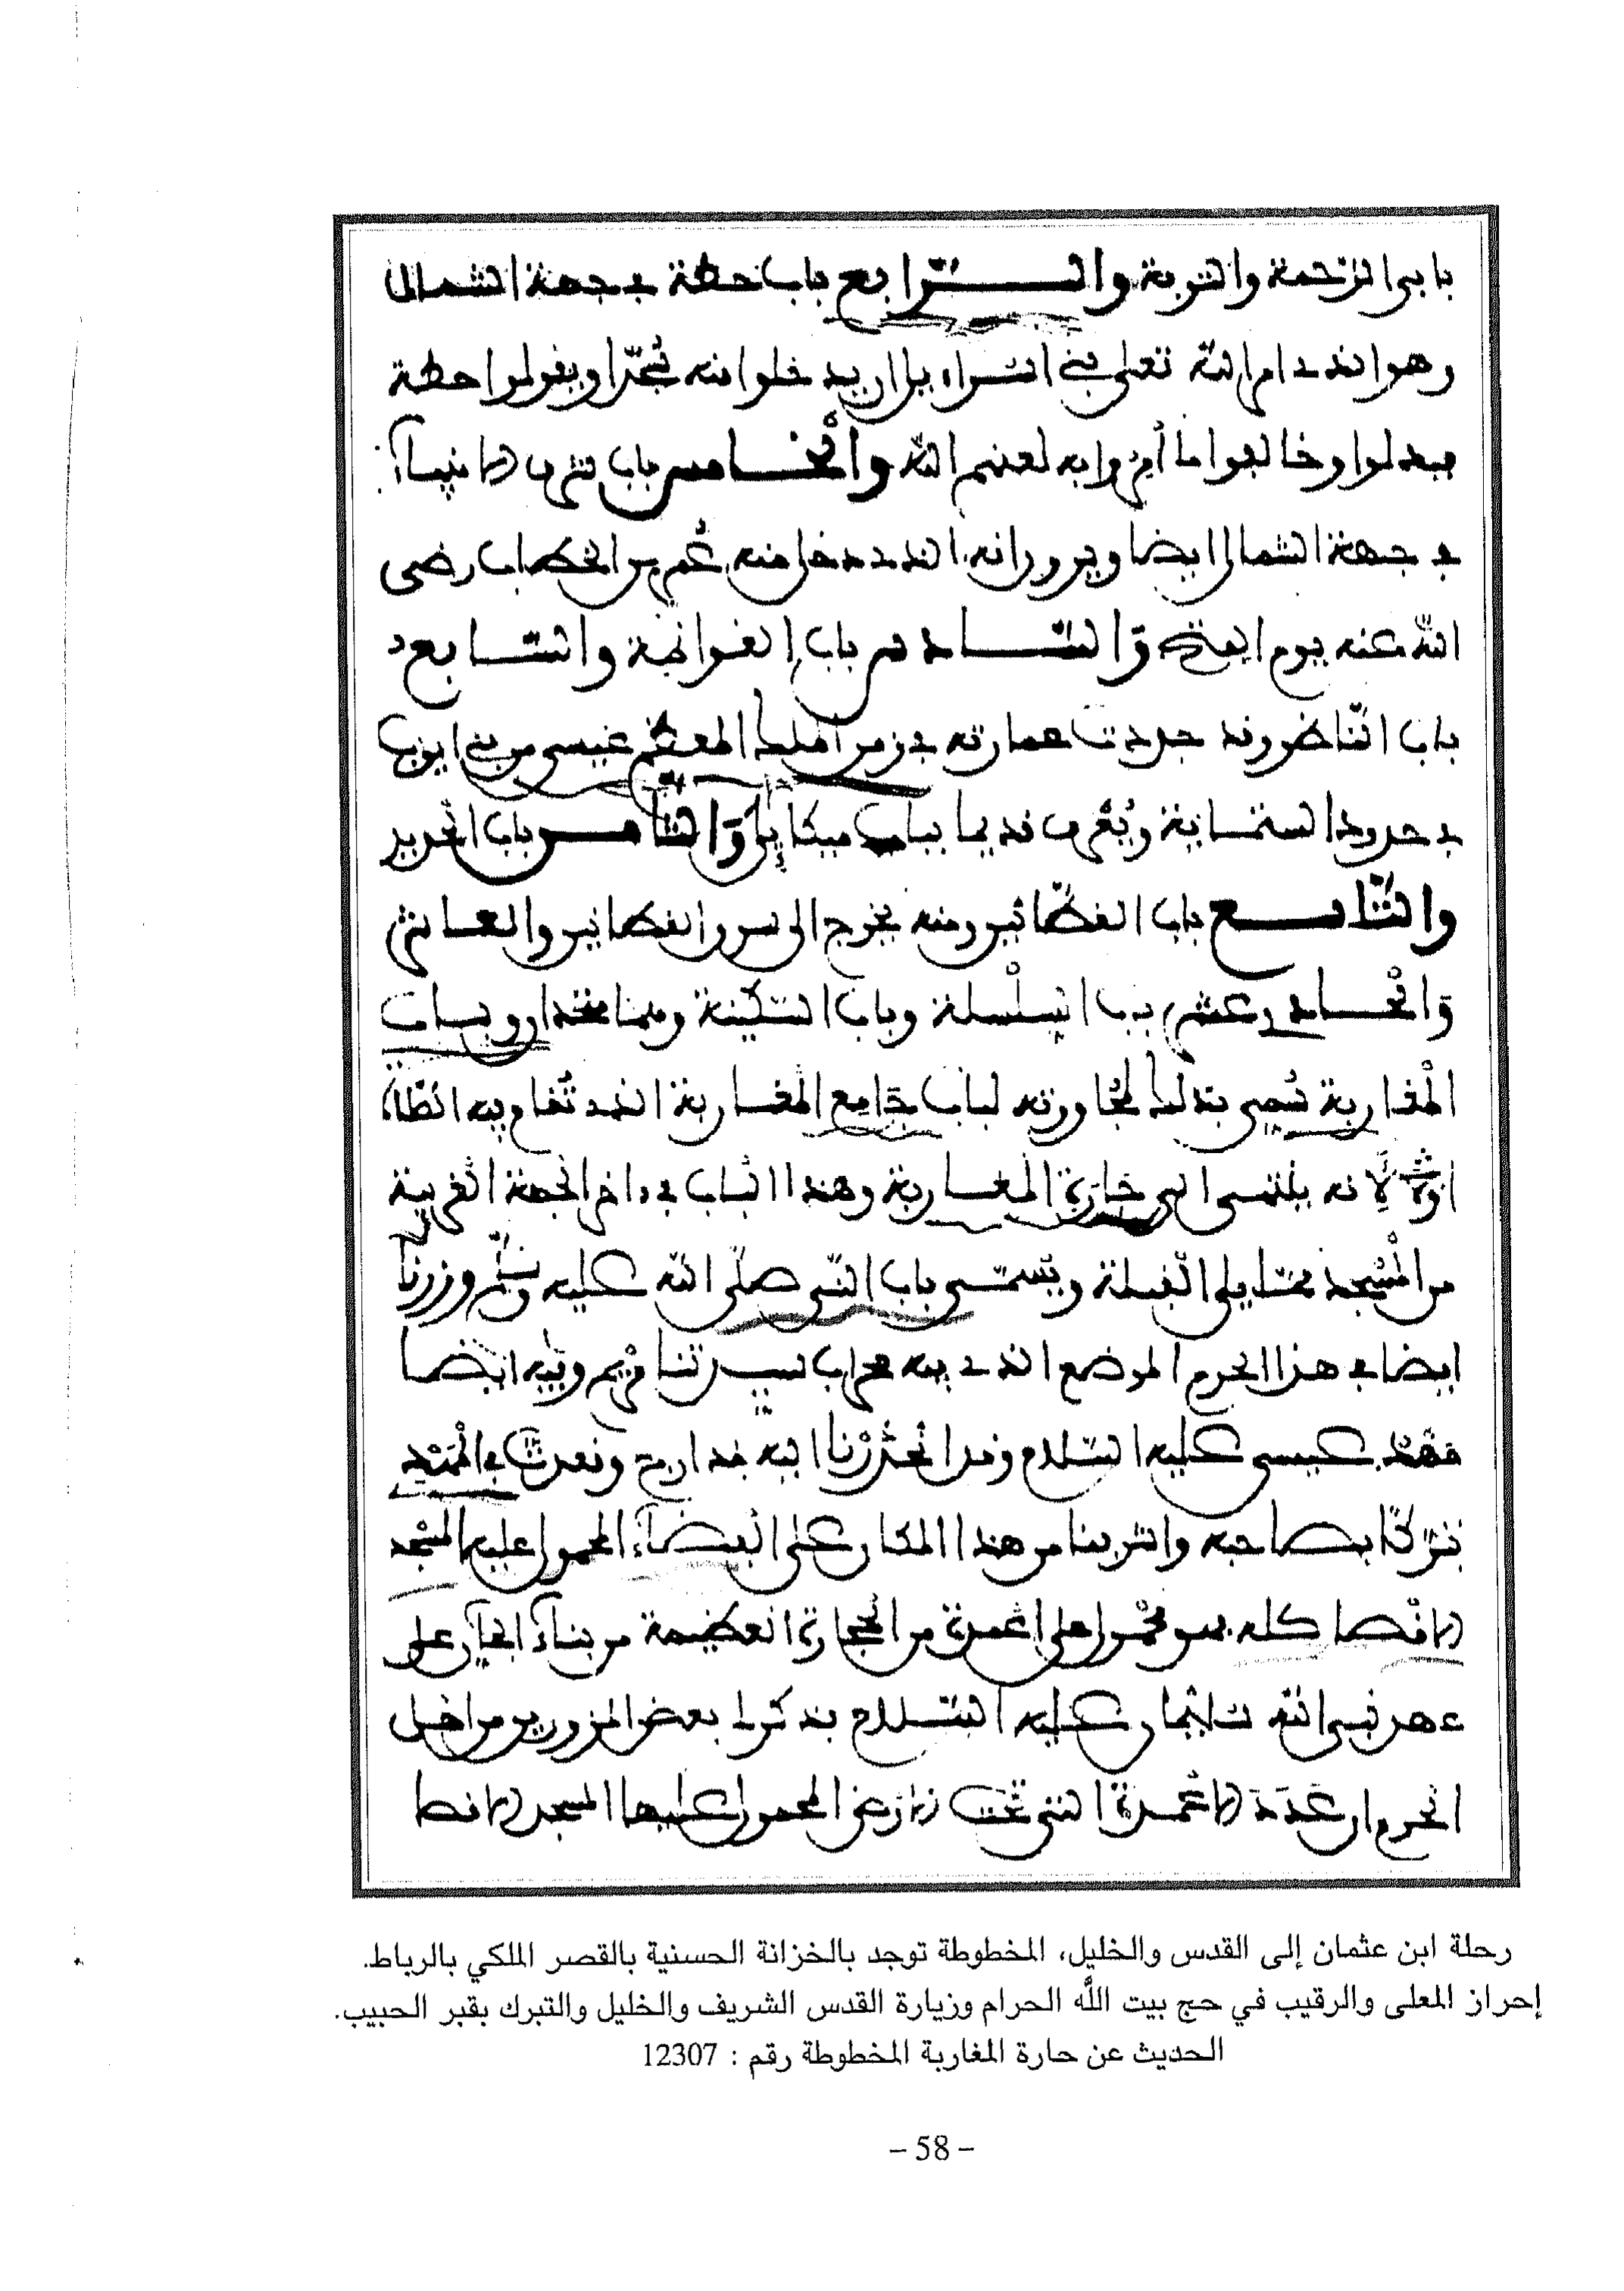 بابي الرحمة والتوبة والرابع باب حطة في جهة الشمال
وهو الذي امر الله تعلى بني اسراءيل ان يدخلوا منه سجدا ويقولوا حطة
فبدلوا وخالفوا ما أمروا به لعنهم الله والخامس باب شرف الانبياء
في جهة الشمال ايضا ويرون انه الذي دخل منه عمر بن الخطاب رضي
الله عنه يوم الفتح والسادس باب الغوانمة والسابع
باب الناظر وقد جددت عمارته في زمن الملك المعظم عيسى من بني ايوب
في حدود الستماية ويعرف قديما بباب ميكايل والثامن باب الحديد
والتاسع باب القطانين ومنه يخرج الى سوق القطانين والعاشر
والحادي عشر باب السلسلة وباب السكينة وهما متحدان وباب
المغاربة سمي بذلك لمجاورته لباب جامع المغاربة الذي تقام فيه الصلاة
لانه ينتهي الى حارة المغاربة وهذا الباب في داخر الجهة الغربية
من المسجد مما يلي القبلة ويسمى باب النبي صلى الله عليه وسلم وزرنا
ايضا في هذا الحرم الموضع الذي فيه محراب سيدتنا مريم وفيه ايضا
مهد عيسى عليه السلام وقد انحدرنا اليه في ادراج وقعدت في المهد
تبركا بصاحبه واشرفنا من هذا المكان على الفضاء المحمول عليه المسجد
الاقصا كله فهو محمول على اعمدة من الحجارة العظيمة من بناء الجان على
عهد نبي الله سليمان عليه السلام فذكر لي بعض المزورين من اهل
الحرم ان عدد الاعمدة التي تحت الارض المحمول عليها المسجد الاقصا
رحلة ابن عثمان إلى القدس والخليل، المخطوطة توجد بالخزانة الحسنية بالقصر الملكي بالرباط.
إحراز المعلى والرقيب في حج بيت الله الحرام وزيارة القدس الشريف والخليل والتبرك بقبر الحبيب.
الحديث عن حارة المغاربة المخطوطة رقم : 12307
- 58 -